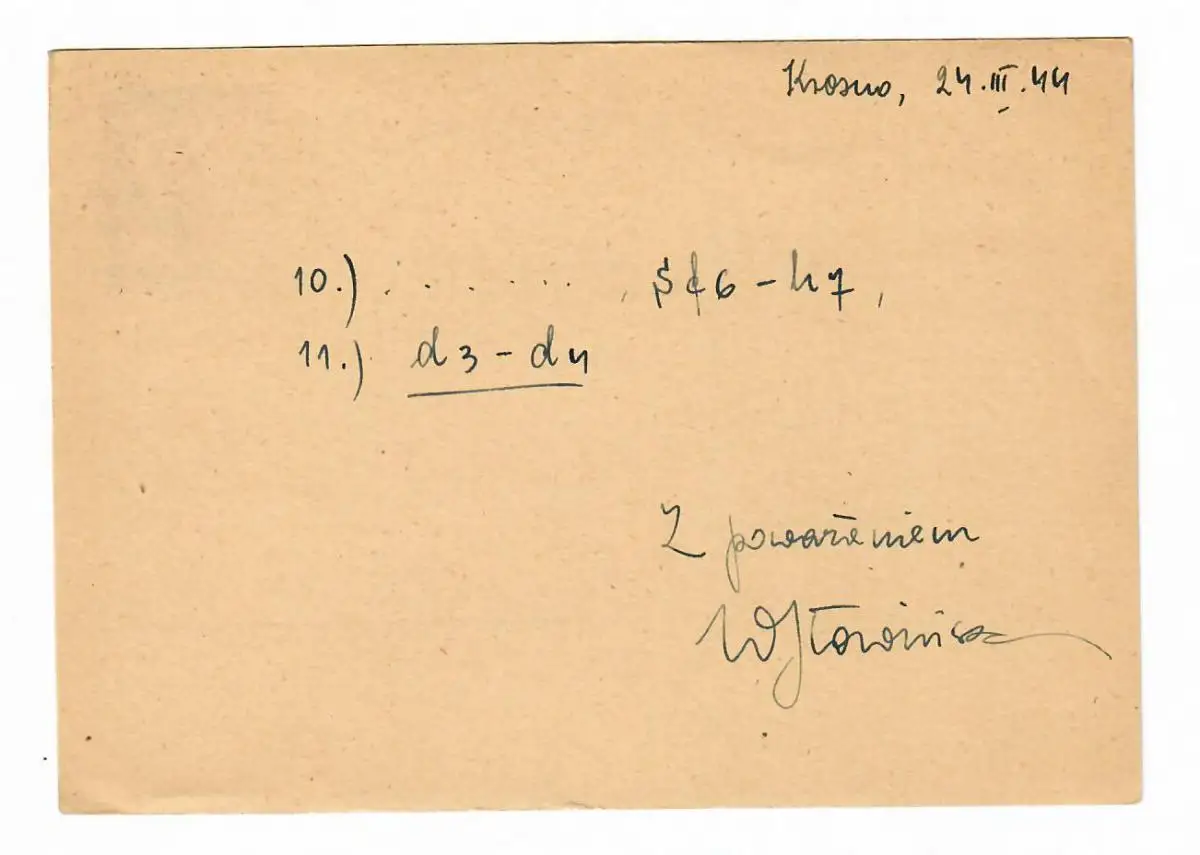 Krosno, 24.III.44
10.) . . . . . . , Sf6 - h7,
11.) d3 - d4
Z poważeniem